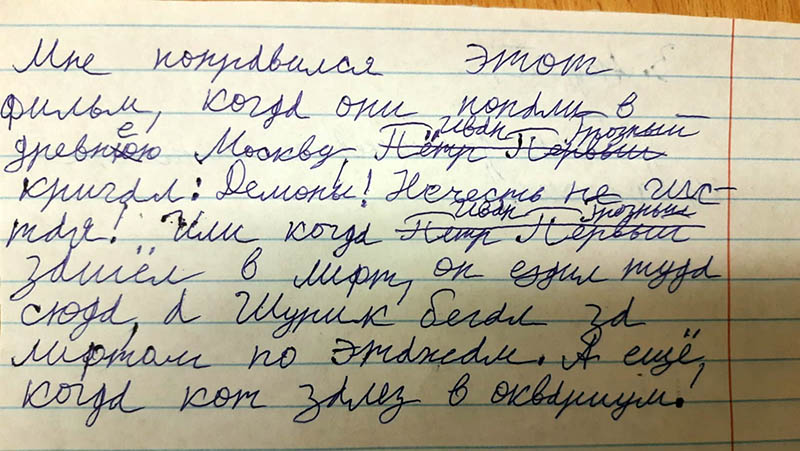 Мне понравился этот
фильм, когда они попали в
Иван Грозный
древнею Москву, Пётр Первый
кричал: Демоны! Нечесть не чис-
Иван Грозный
тая! Или когда Пётр Первый
зашёл в лифт, он ездил туда
сюда, а Шурик бегал за
лифтом по этажам. А ещё,
когда кот залез в оквариум!